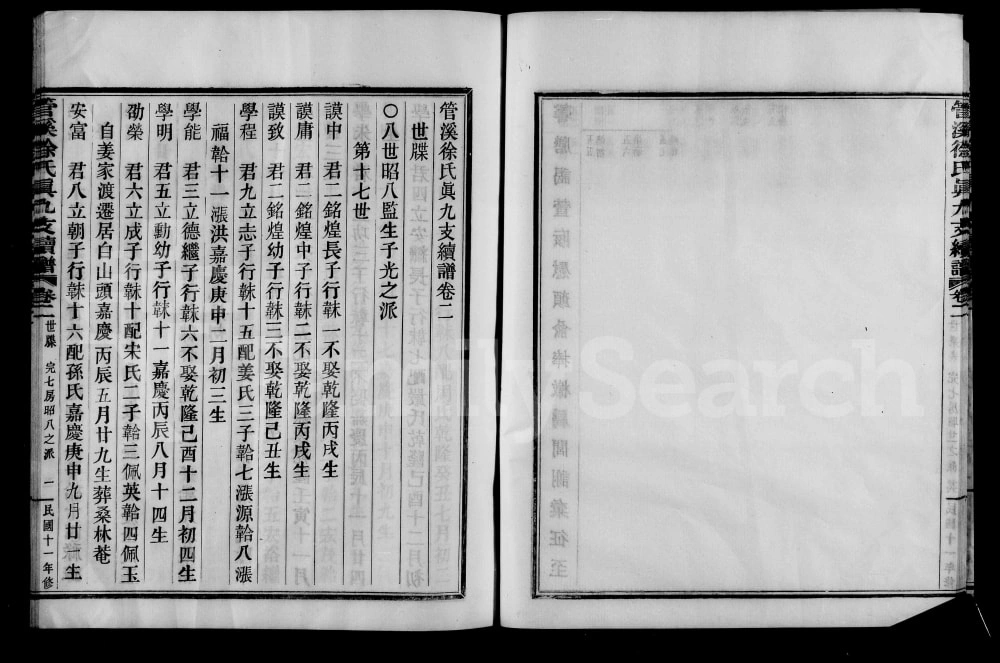 管溪徐氏眞九支續譜卷二
世牒
○八世昭八監生子光之派
第十七世
謨中 君二銘煌長子行韎一不娶乾隆丙戌生
謨庸 君二銘煌中子行韎二不娶乾隆丙戌生
謨致 君二銘煌幼子行韎三不娶乾隆己丑生
學程 君九立志子行韎十五配姜氏三子韐七漲源韐八漲
福韐十一漲洪嘉慶庚申二月初三生
學能 君三立德繼子行韎六不娶乾隆己酉十二月初四生
學明 君五立勳幼子行韎十一嘉慶丙辰八月十四生
劭榮 君六立成子行韎十配宋氏二子韐三佩英韐四佩玉
自姜家渡遷居白山頭嘉慶丙辰五月廿九生葬桑林菴
安富 君八立朝子行韎十六配孫氏嘉慶庚申九月廿一生
管溪徐氏眞九支續譜卷二 世牒 完七房昭八之派 一 民國十一年修
管溪徐氏眞九支續譜 卷二
FamilySearch